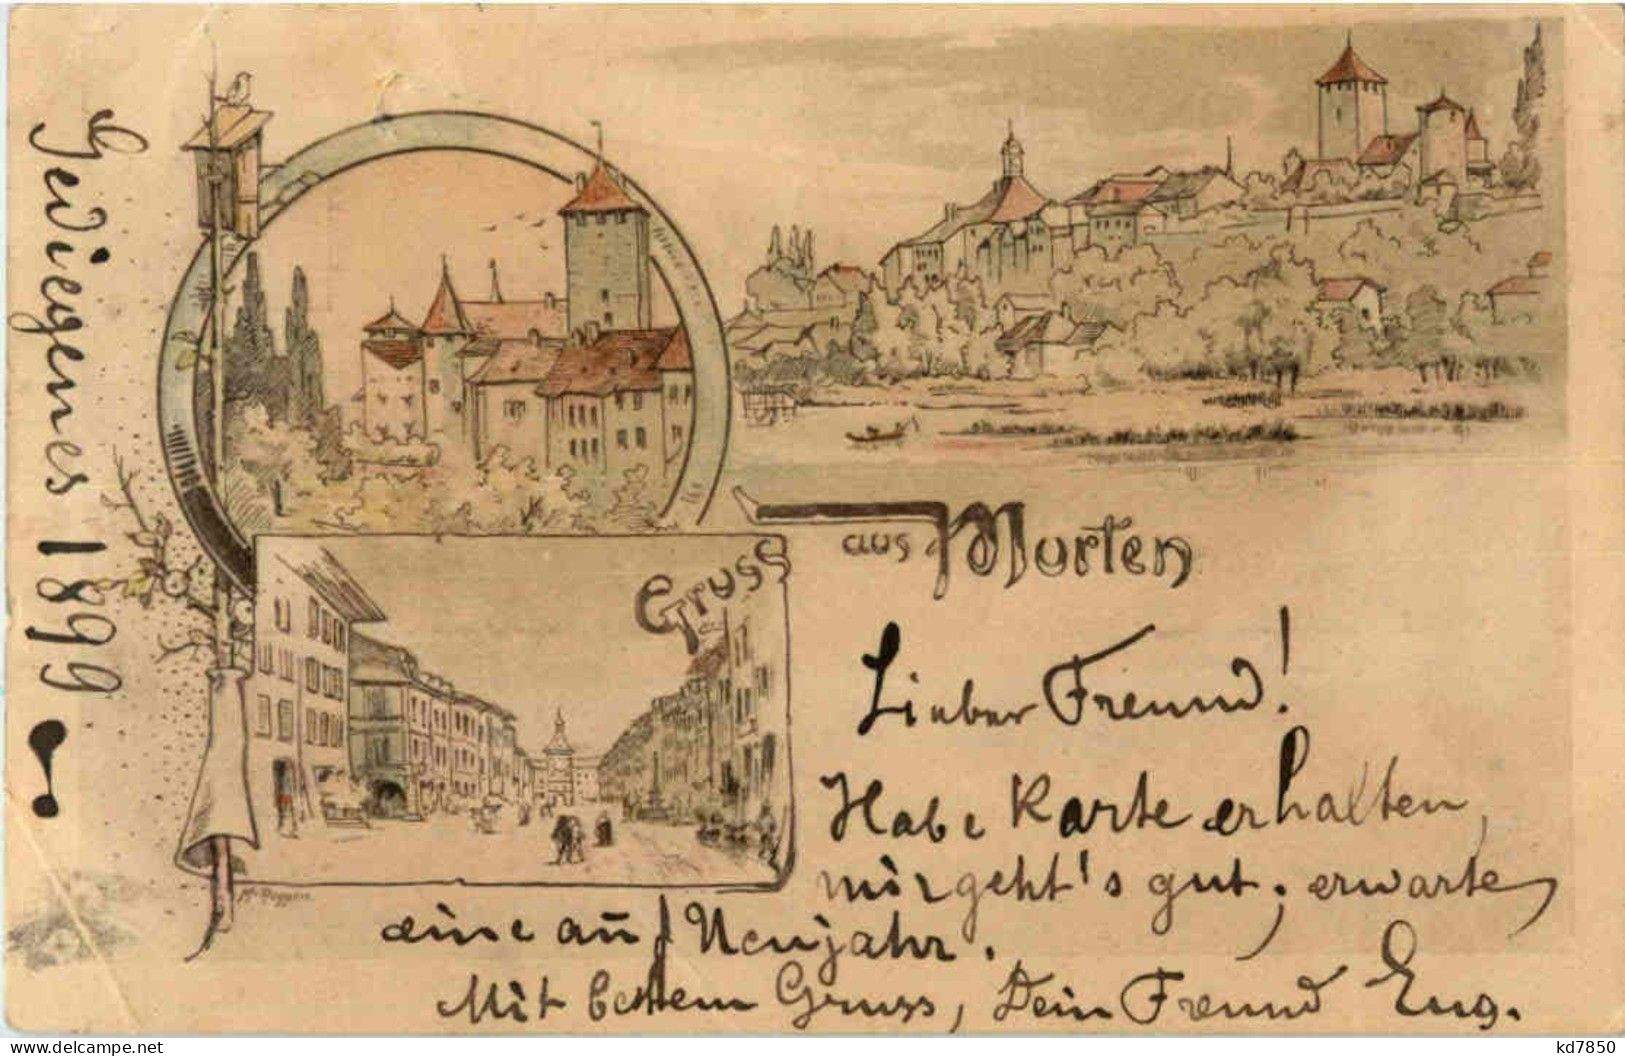 Gediegenes 1899!
Gruss aus Murten
Lieber Freund!
Habe Karte erhalten,
mir geht's gut; erwarte
eine auf Neujahr.
Mit bestem Gruss, Dein Freund Eug.
www.delcampe.net
kd7850